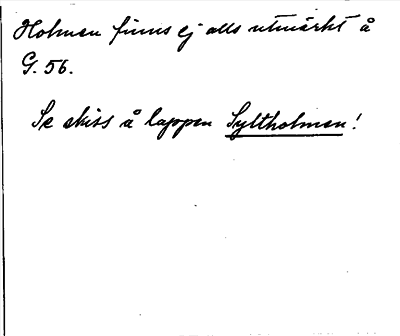 Holmen finns ej alls utmärkt å
G. 56.
Se skiss å lappen Syltholmen!